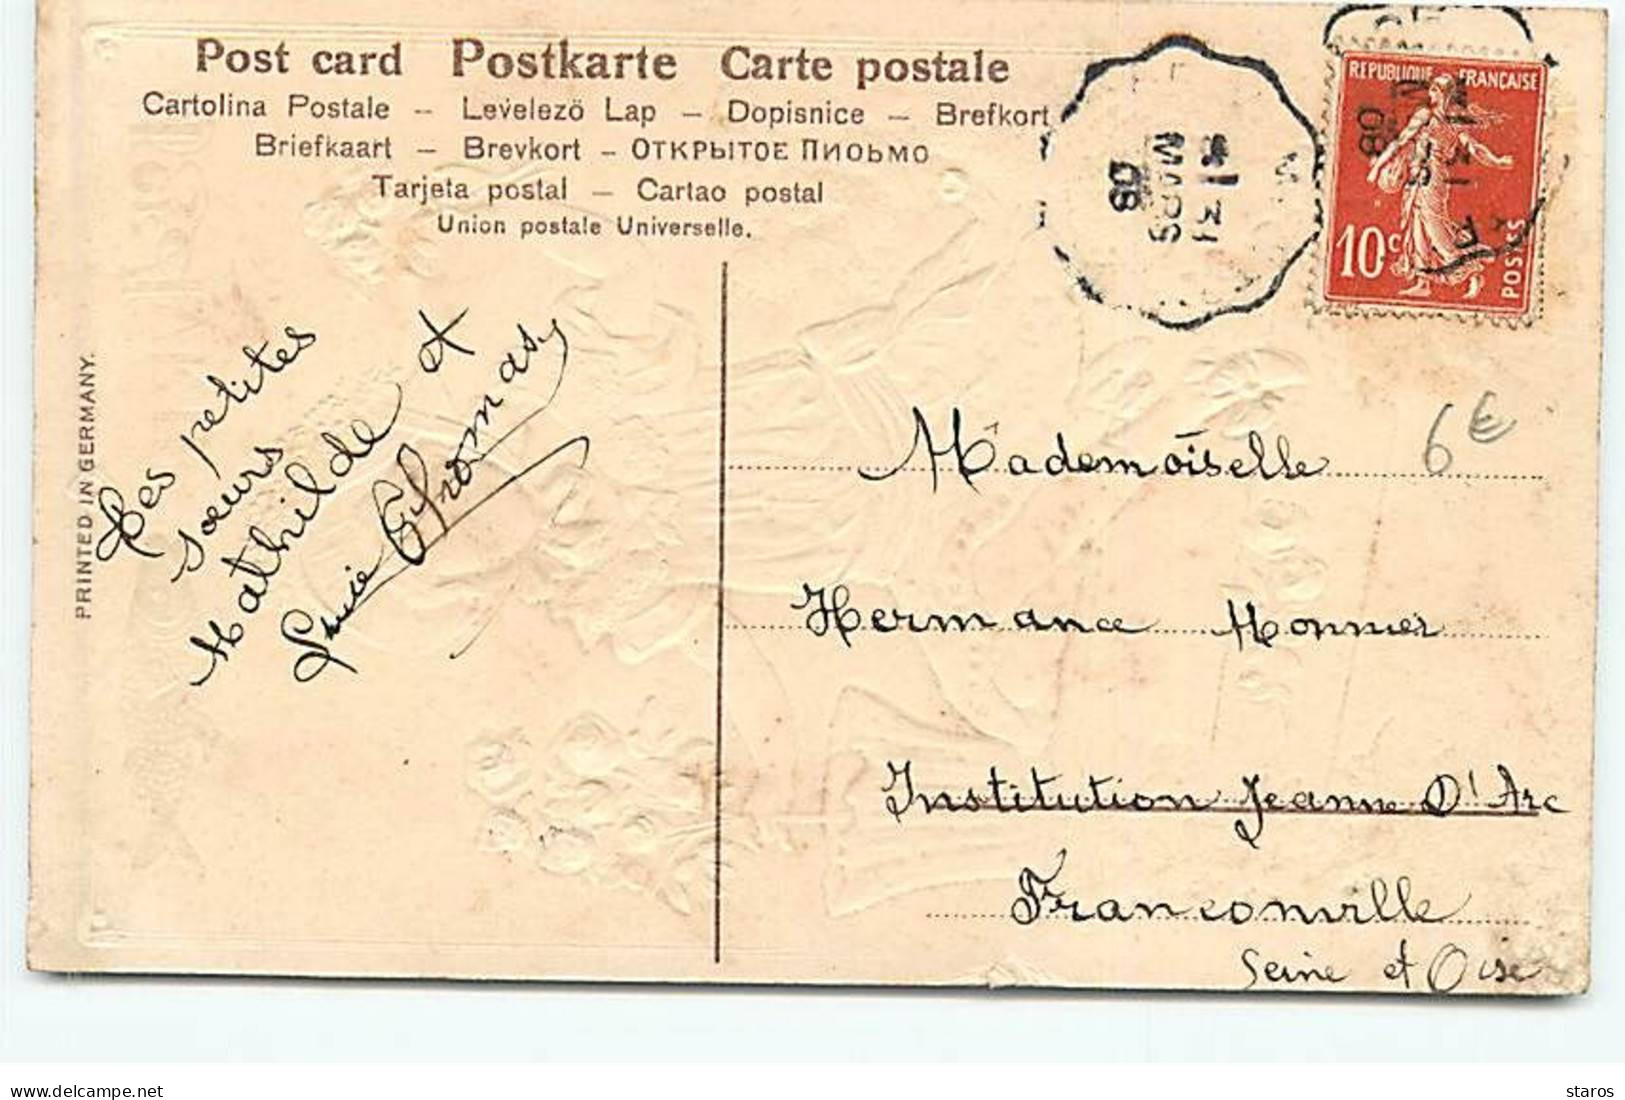 Post card Postkarte Carte postale
Cartolina Postale – Levelezö Lap – Dopisnice – Brefkort
Briefkaart – Brevkort – ОТКРЫТОЕ ПИСЬМО
Tarjeta postal – Cartao postal
Union postale Universelle.
PRINTED IN GERMANY.
Les petites
soeurs
Mathilde et
Lucie Thomas
REPUBLIQUE FRANÇAISE
10c
POSTES
MARS
08
6€
Mademoiselle
Hermance Monnier
Institution Jeanne D'Arc
Franconville
Seine et Oise
delcampe.net
staros